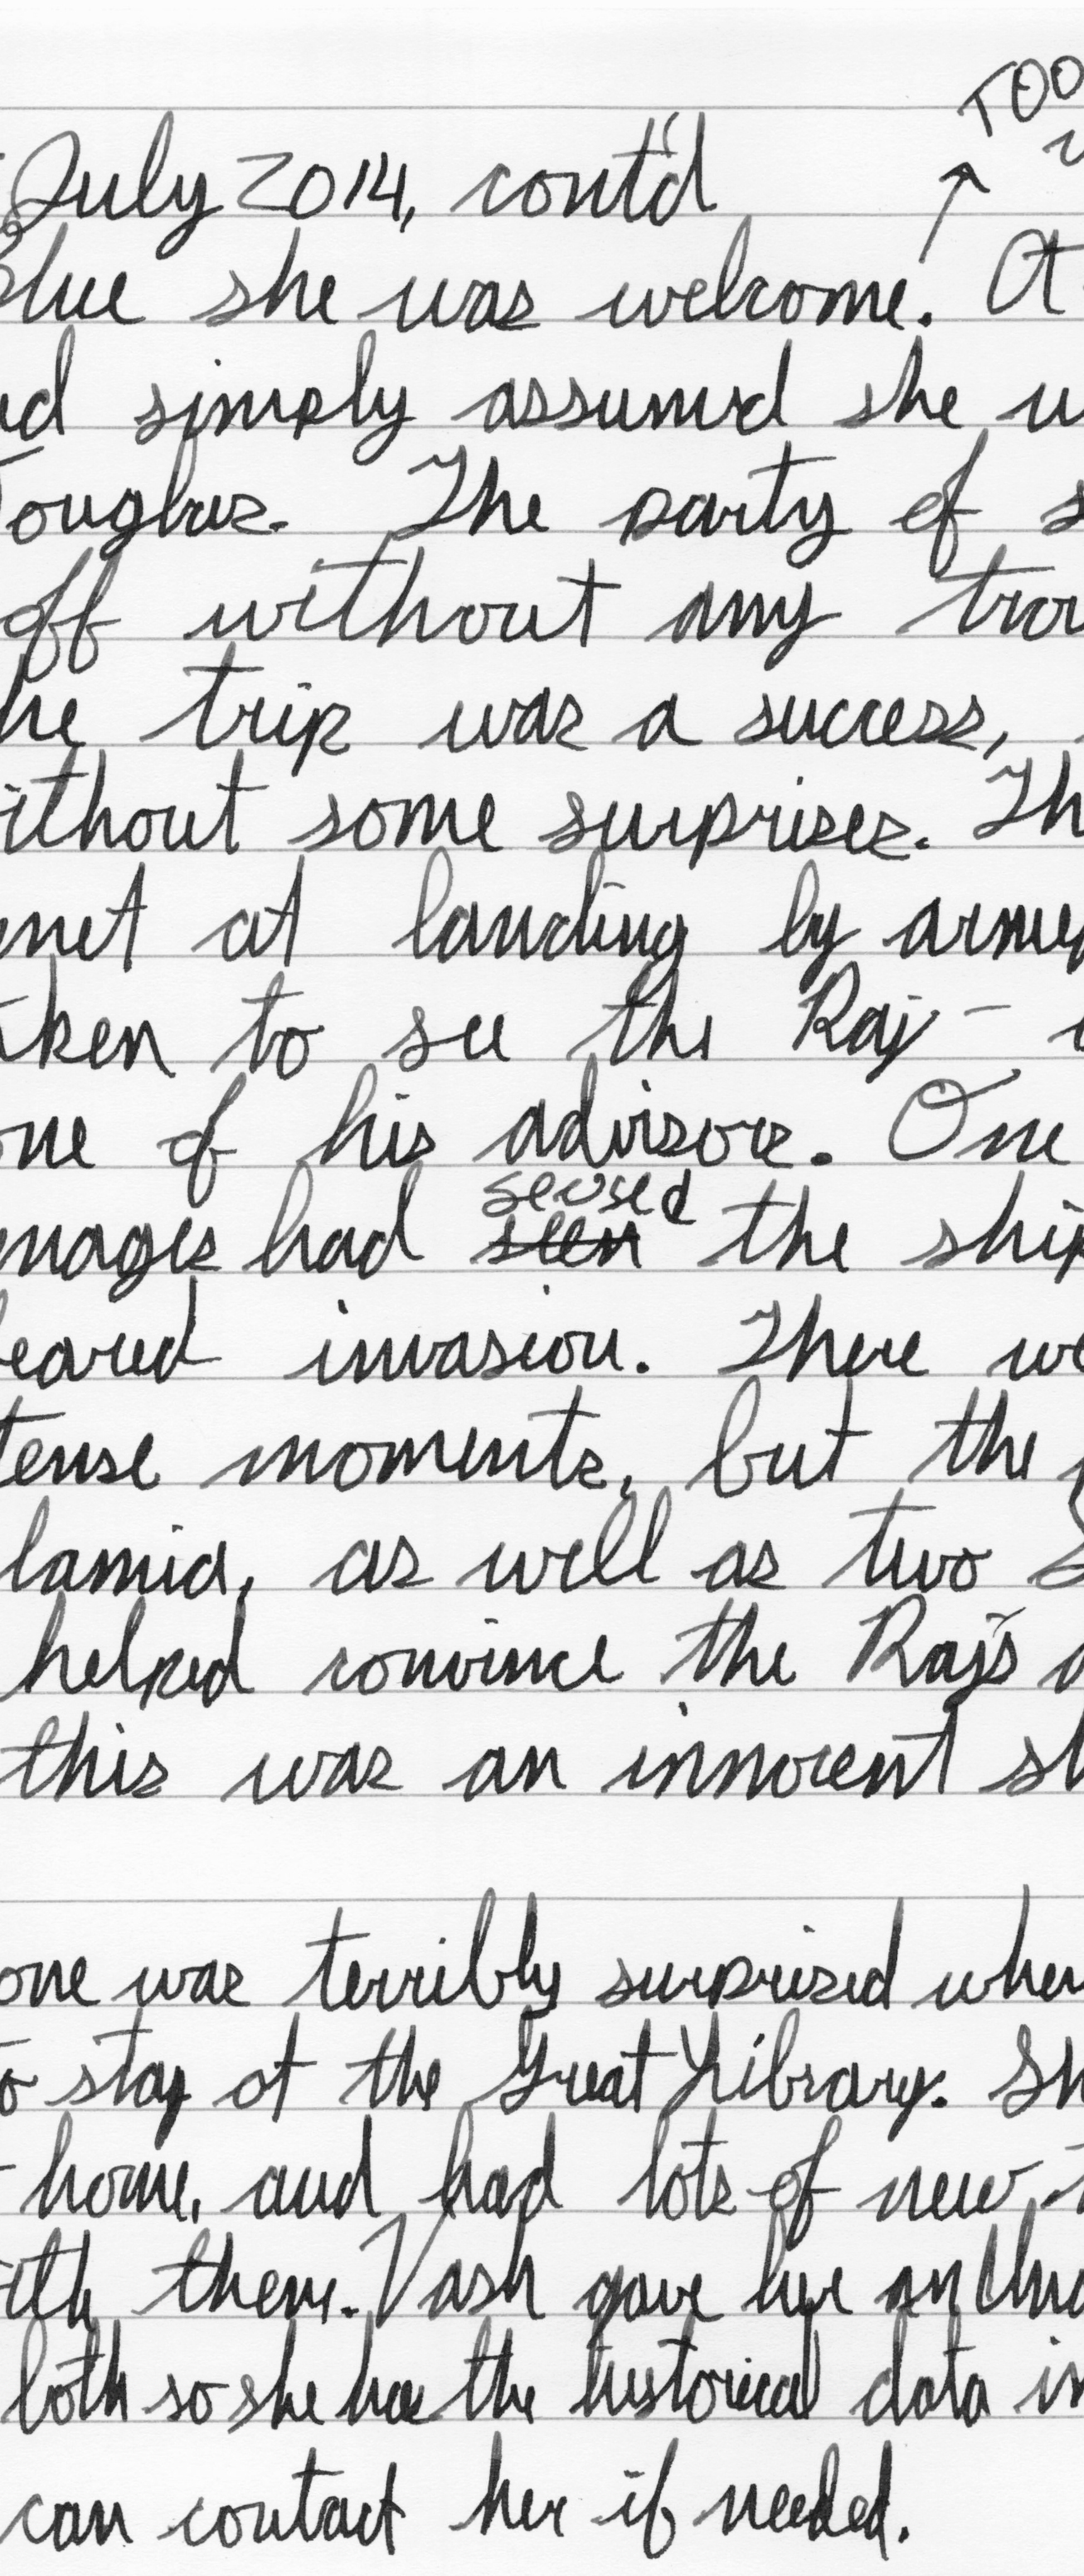 TOO
July 2014, cont'd
Blue she was welcome. At
simply assumed she
The party of
off without any
he trip was a success,
ithout some surprises. Th
met at landing by arme
ken to see the Raj -
one of his advisors. One
mages had sensed the ship
feared invasion. There we
tense moments, but the
lamia, as well as two
helped convince the Raj's
this was an innocent sh
one was terribly surprised when
to stay at the Great Library. Sh
home, and had lots of new
ith them. Vash gave her an
both so she has the historical data in
can contact her if needed.